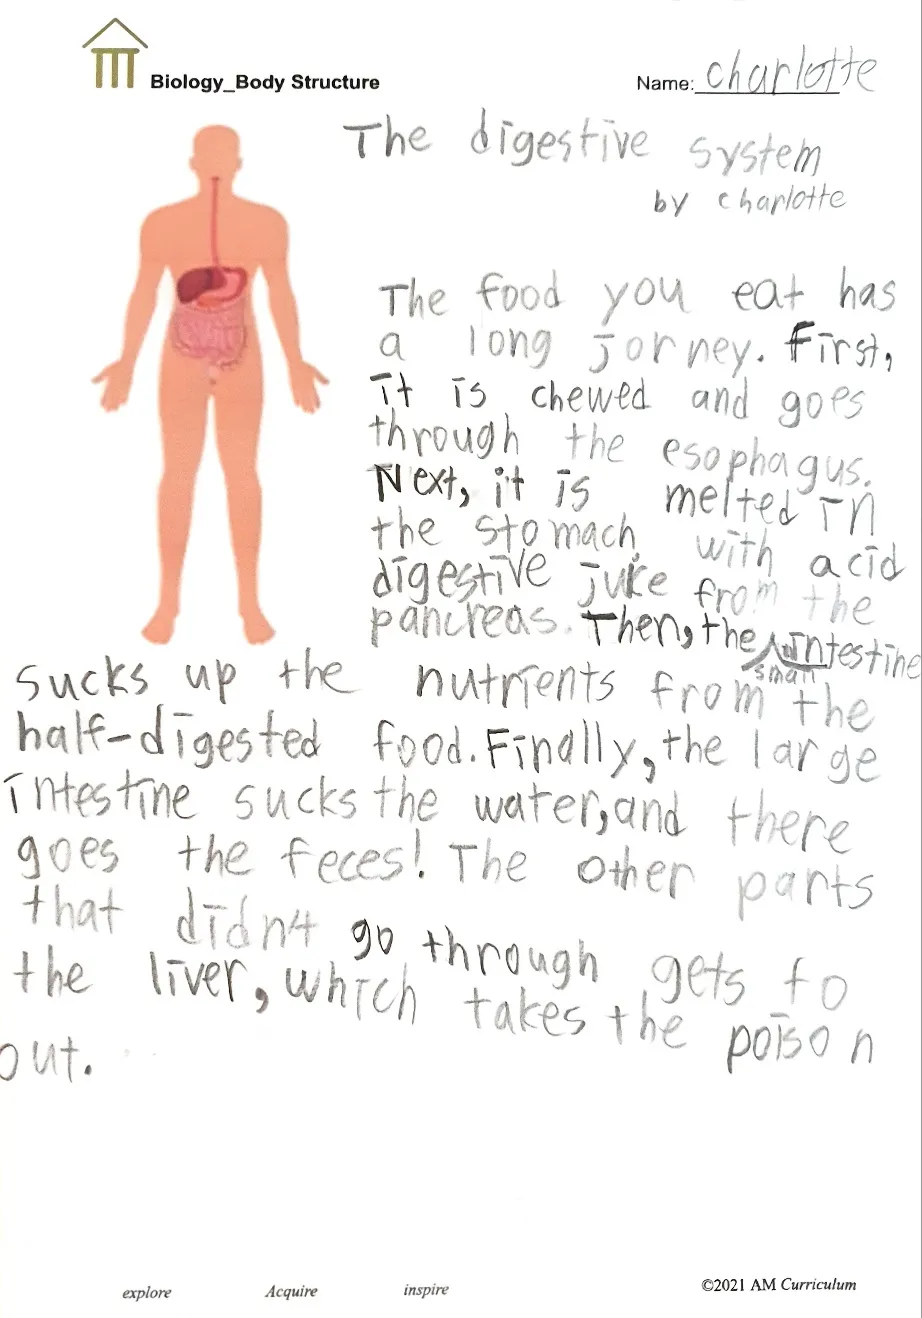 Biology_Body Structure
Name: charlotte
The digestive system
by charlotte
The food you eat has
a long jorney. First,
it is chewed and goes
through the esophagus.
Next, it is melted in
the stomach with acid
digestive juke from the
pancreas. Then, the small intestine
sucks up the nutrients from the
half-digested food. Finally, the large
intestine sucks the water, and there
goes the feces! The other parts
that didn't go through gets to
the liver, which takes the poison
out.
explore Acquire inspire
©2021 AM Curriculum